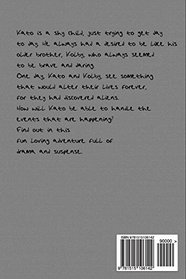 Kato is a shy child, just trying to get day
to day. He always had a desire to be like his
older brother, Kolby, who always seemed
to be brave and daring.
One day Kato and Kolby see something
that would alter their lives forever,
for they had discovered aliens.
How will Kato be able to handle the
events that are happening?
Find out in this
fun loving adventure full of
drama and suspense.
ISBN 9781515106142
90000
9 781515 106142